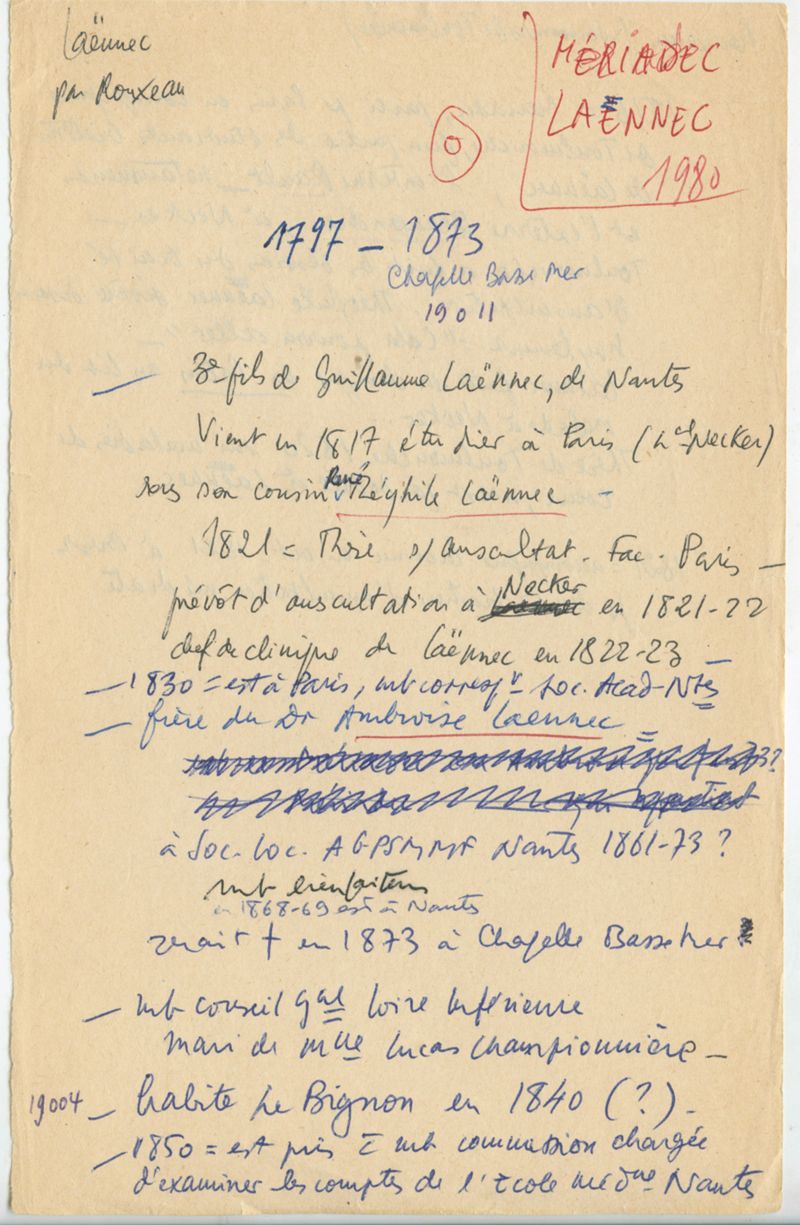 Laënnec
par Rouxeau
MÉRIADEC
LAËNNEC
1980
0
1797 – 1873
Chapelle Basse Mer
19011
— 3e fils de Guillaume Laënnec, de Nantes
Vient en 1817 étudier à Paris (hal Necker)
sous son cousin René Théophile Laënnec –
1821 = Thèse s/ auscultat. Fac. Paris –
prévôt d'auscultation à Necker en 1821-22
chef de clinique de Laënnec en 1822-23 –
— 1830 = est à Paris, mb corresp. Soc. Acad. Ntes
— frère du Dr Ambroise Laennec
à Soc. Loc. AGPSMMF Nantes 1861-73 ?
mb bienfaiteur
en 1868-69 est à Nantes
serait † en 1873 à Chapelle Basse Mer
— mb conseil gal Loire Inférieure
mari de Mlle Lucas Championnière –
19004 — habite Le Bignon en 1840 (?) –
— 1850 = est pris c̄ mb commission chargée
d'examiner les comptes de l'Ecole médne Nantes